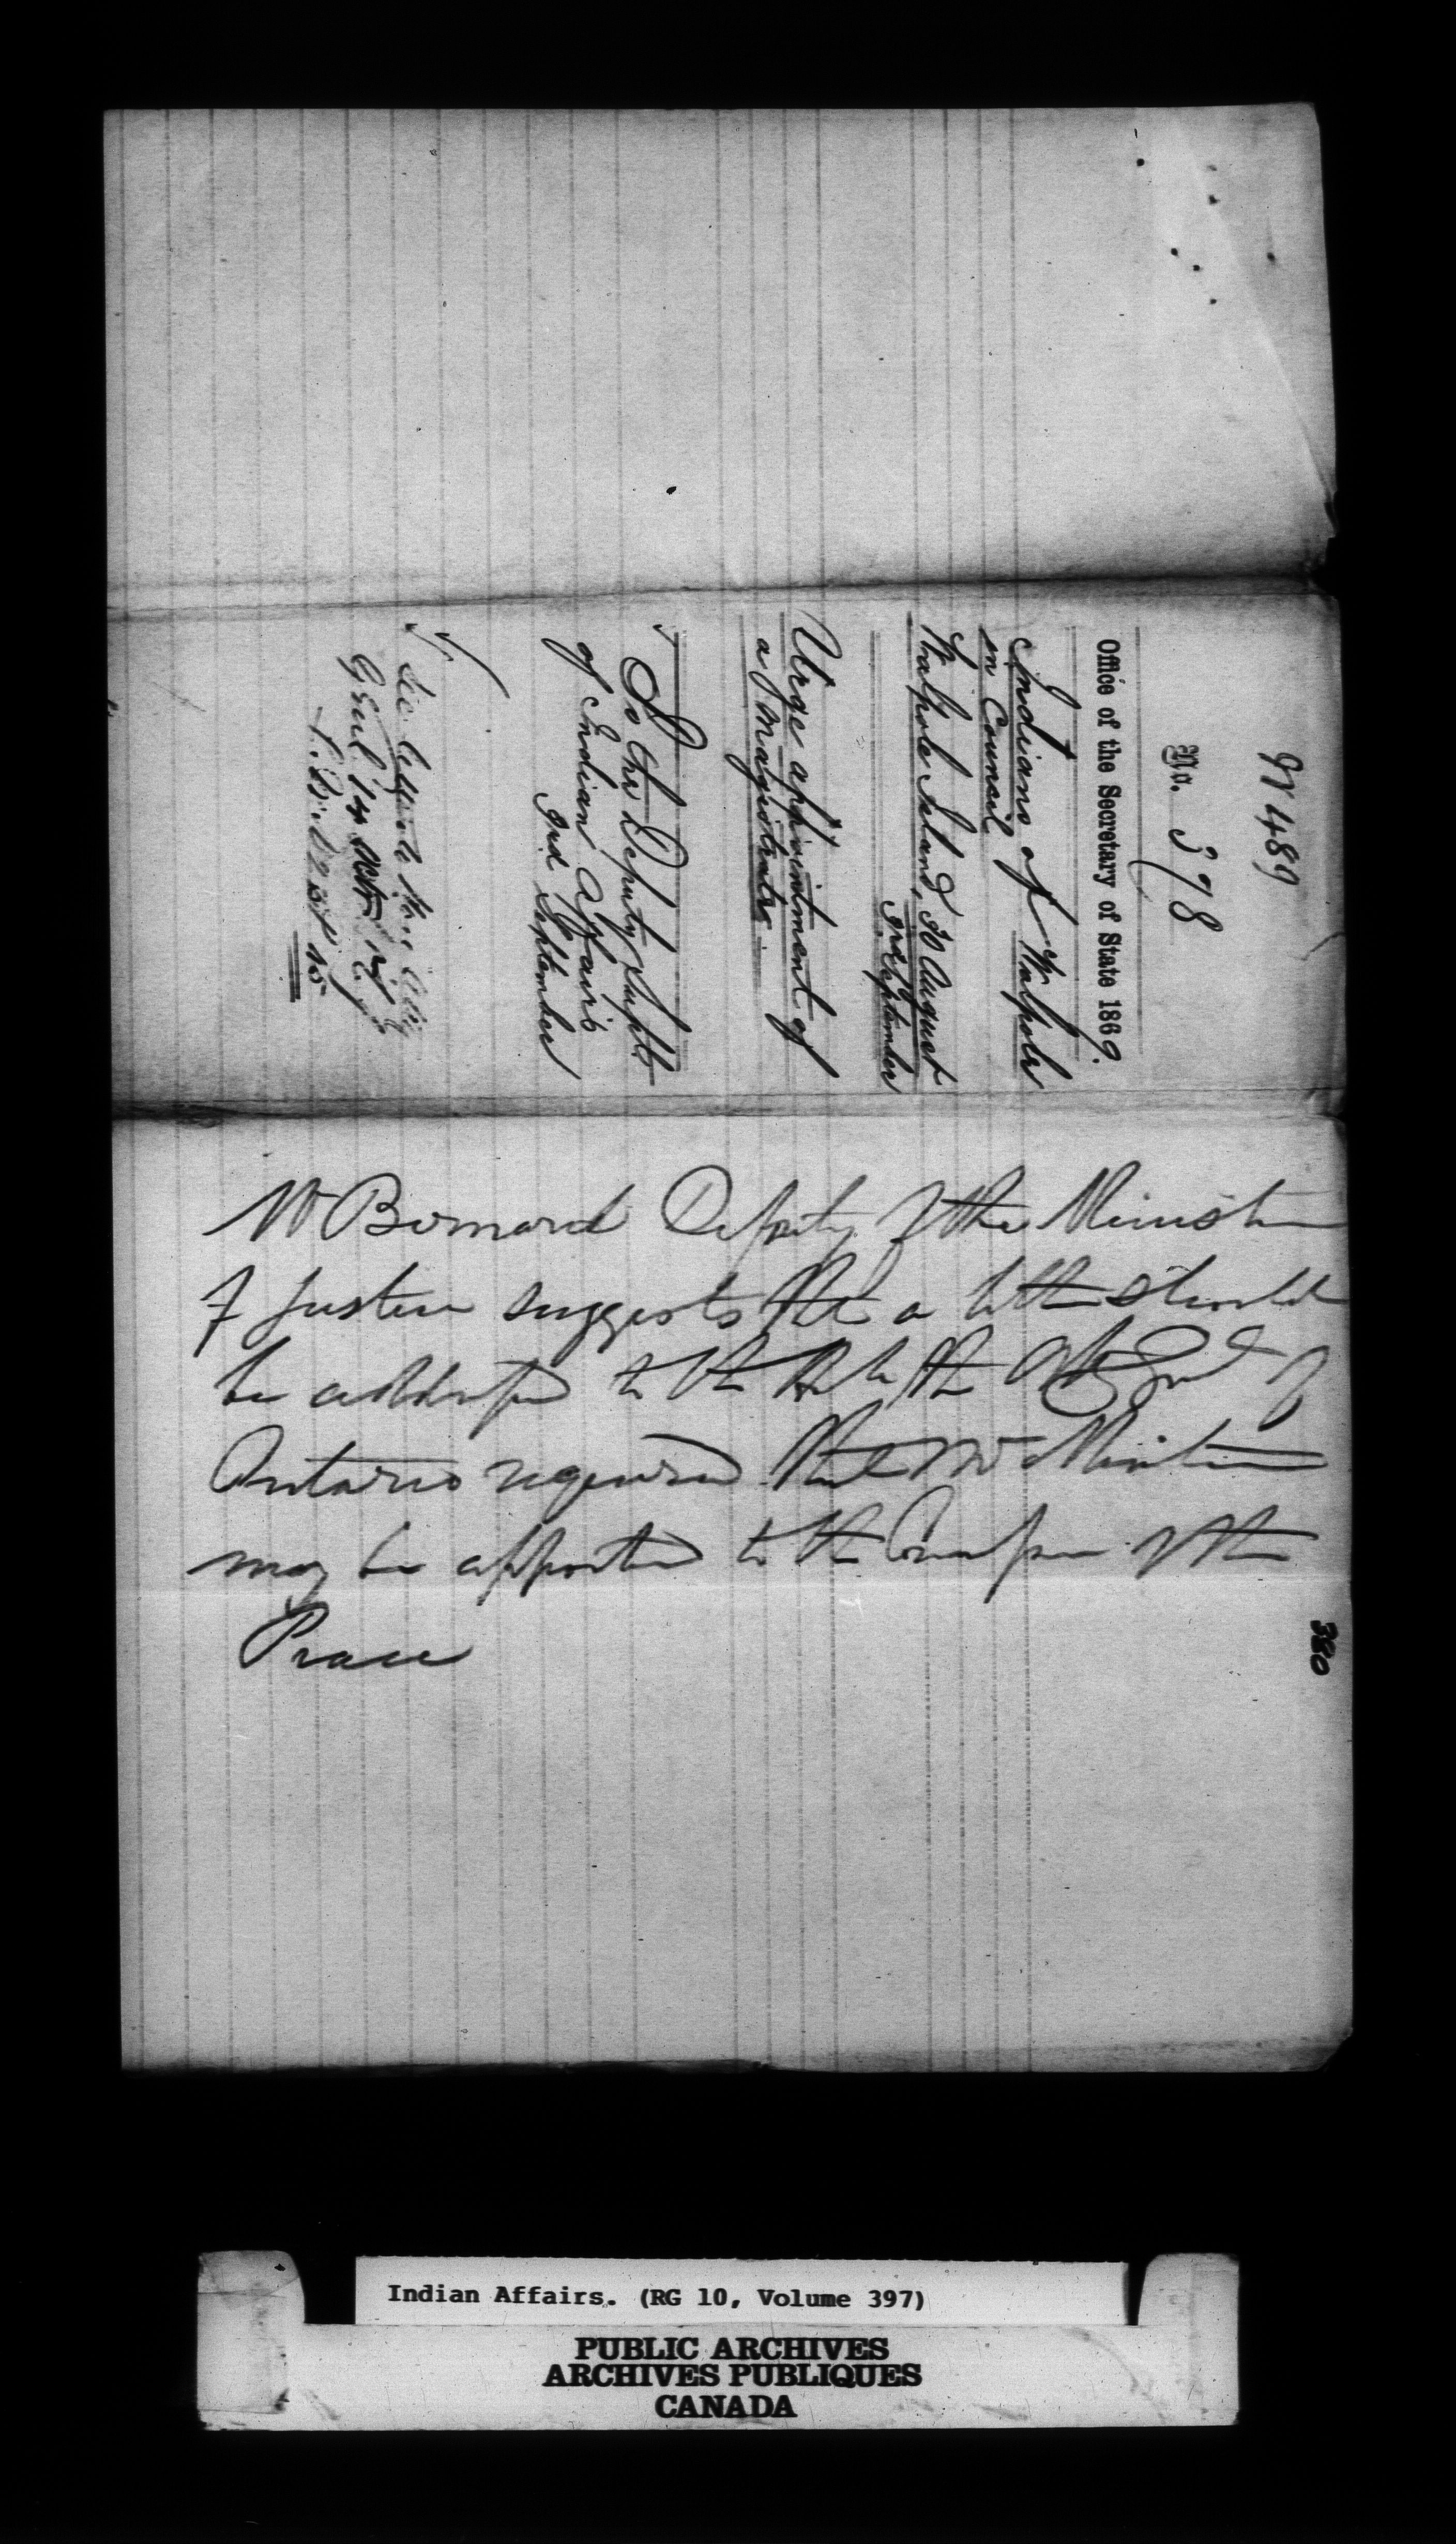 W 489
No. 398
Office of the Secretary of State 1869.
Indians of Walpole
in Council
Walpole Island, 30 August
3rd September
Urge appointment of
a Magistrate.
To the Deputy Supt
of Indian Affairs
3rd September
See letter to Hon Atty
Genl 14
L. B.
Mr Bernard Deputy of the Minister
of Justice suggests that a letter should
be addressed to the the Atty Genl of
Ontario that Mr
may be appointed to the Commission of the
Peace
380
Indian Affairs. (RG 10, Volume 397)
PUBLIC ARCHIVES
ARCHIVES PUBLIQUES
CANADA